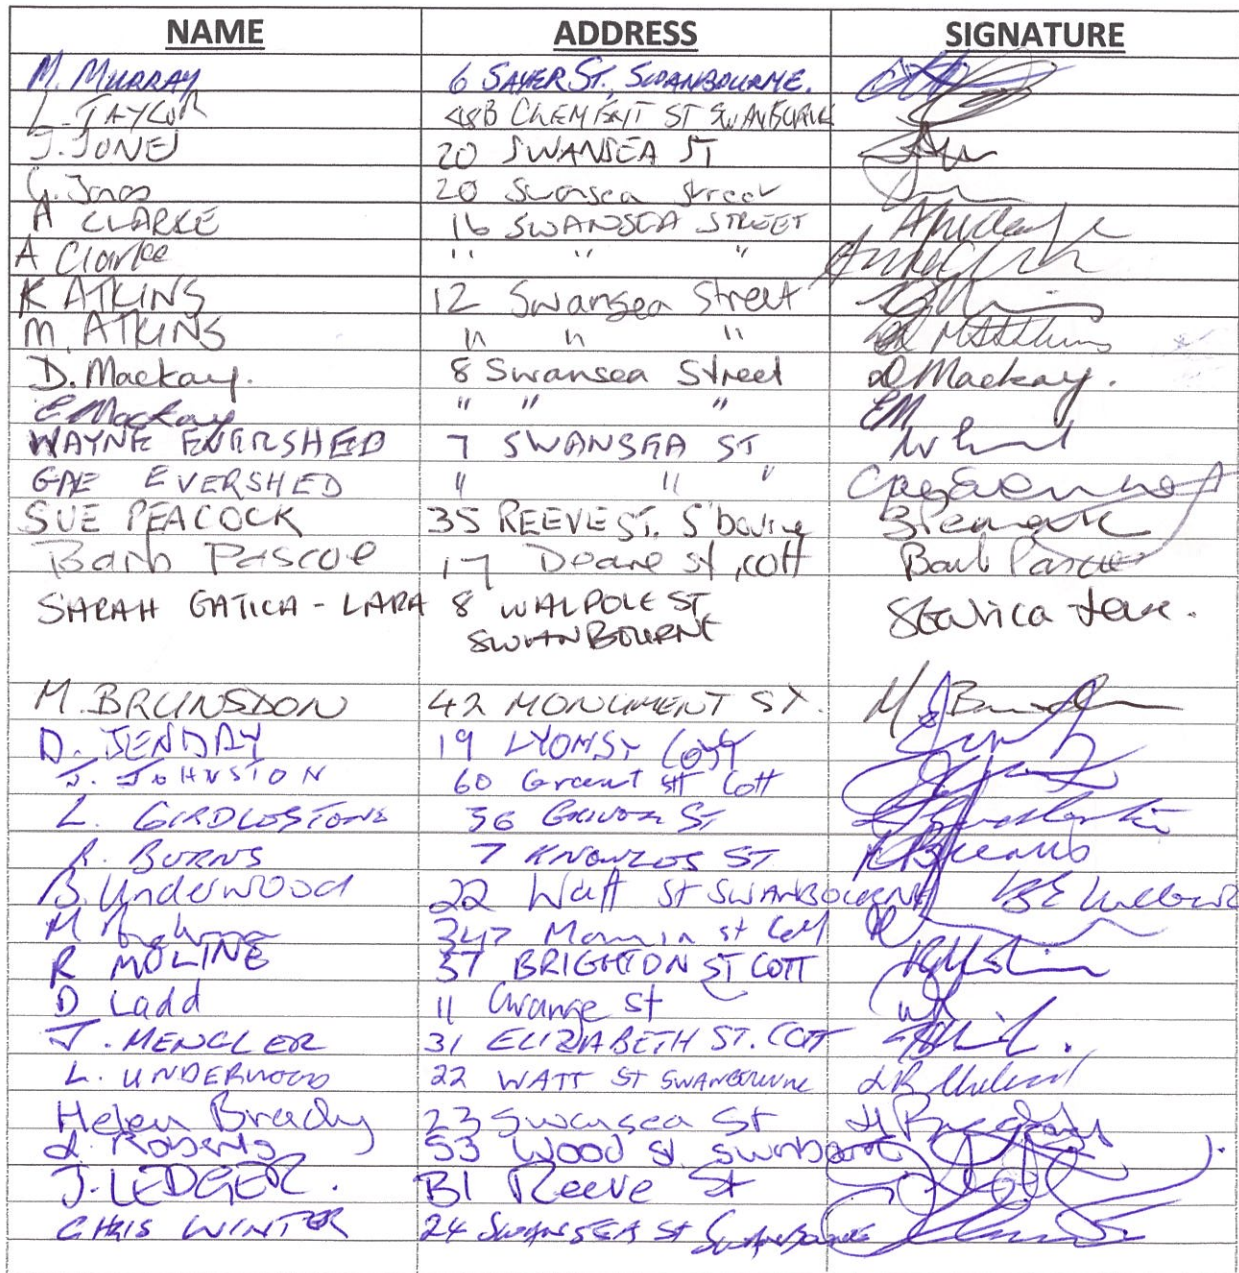 NAME ADDRESS SIGNATURE
M. MURRAY 6 SAYER ST, SWANBOURNE.
L. TAYLOR 48B ST SWANBOURNE
J. JONES 20 SWANSEA ST
G. Jones 20 Swansea Street
A CLARKE 16 SWANSEA STREET
A Clarke " " "
K ATKINS 12 Swansea Street
M. ATKINS " " " M Atkins
D. Mackay. 8 Swansea Street D Mackay.
E Mackay " " " EM
WAYNE EVERSHED 7 SWANSEA ST
GAE EVERSHED " " "
SUE PEACOCK 35 REEVE ST. S'bourne
Barb Pascoe 17 Deane st, cott Barb Pascoe
SARAH GATICA - LARA 8 WALPOLE ST
SWANBOURNE
M. BRUNSDON 42 MONUMENT ST.
D. JENDAY 19 LYONS ST COTT
J. JOHNSTON 60 Grant St Cott
L. GIRDLESTONE 36 ST
R. BURNS 7 KNOWLES ST
B. Underwood 22 Watt St SWANBOURNE
M 347 st Cott
R MOLINE 37 BRIGHTON ST COTT
D Ladd 11 Grange st
J. MENCLER 31 ELIZABETH ST. COTT
L. UNDERWOOD 22 WATT ST SWANBOURNE
Helen Brady 23 Swansea St H Brady
L. Roberts 53 Wood st.
J. LEDGER. 81 Reeve St
CHRIS WINTER 24 SWANSEA St Swanbourne